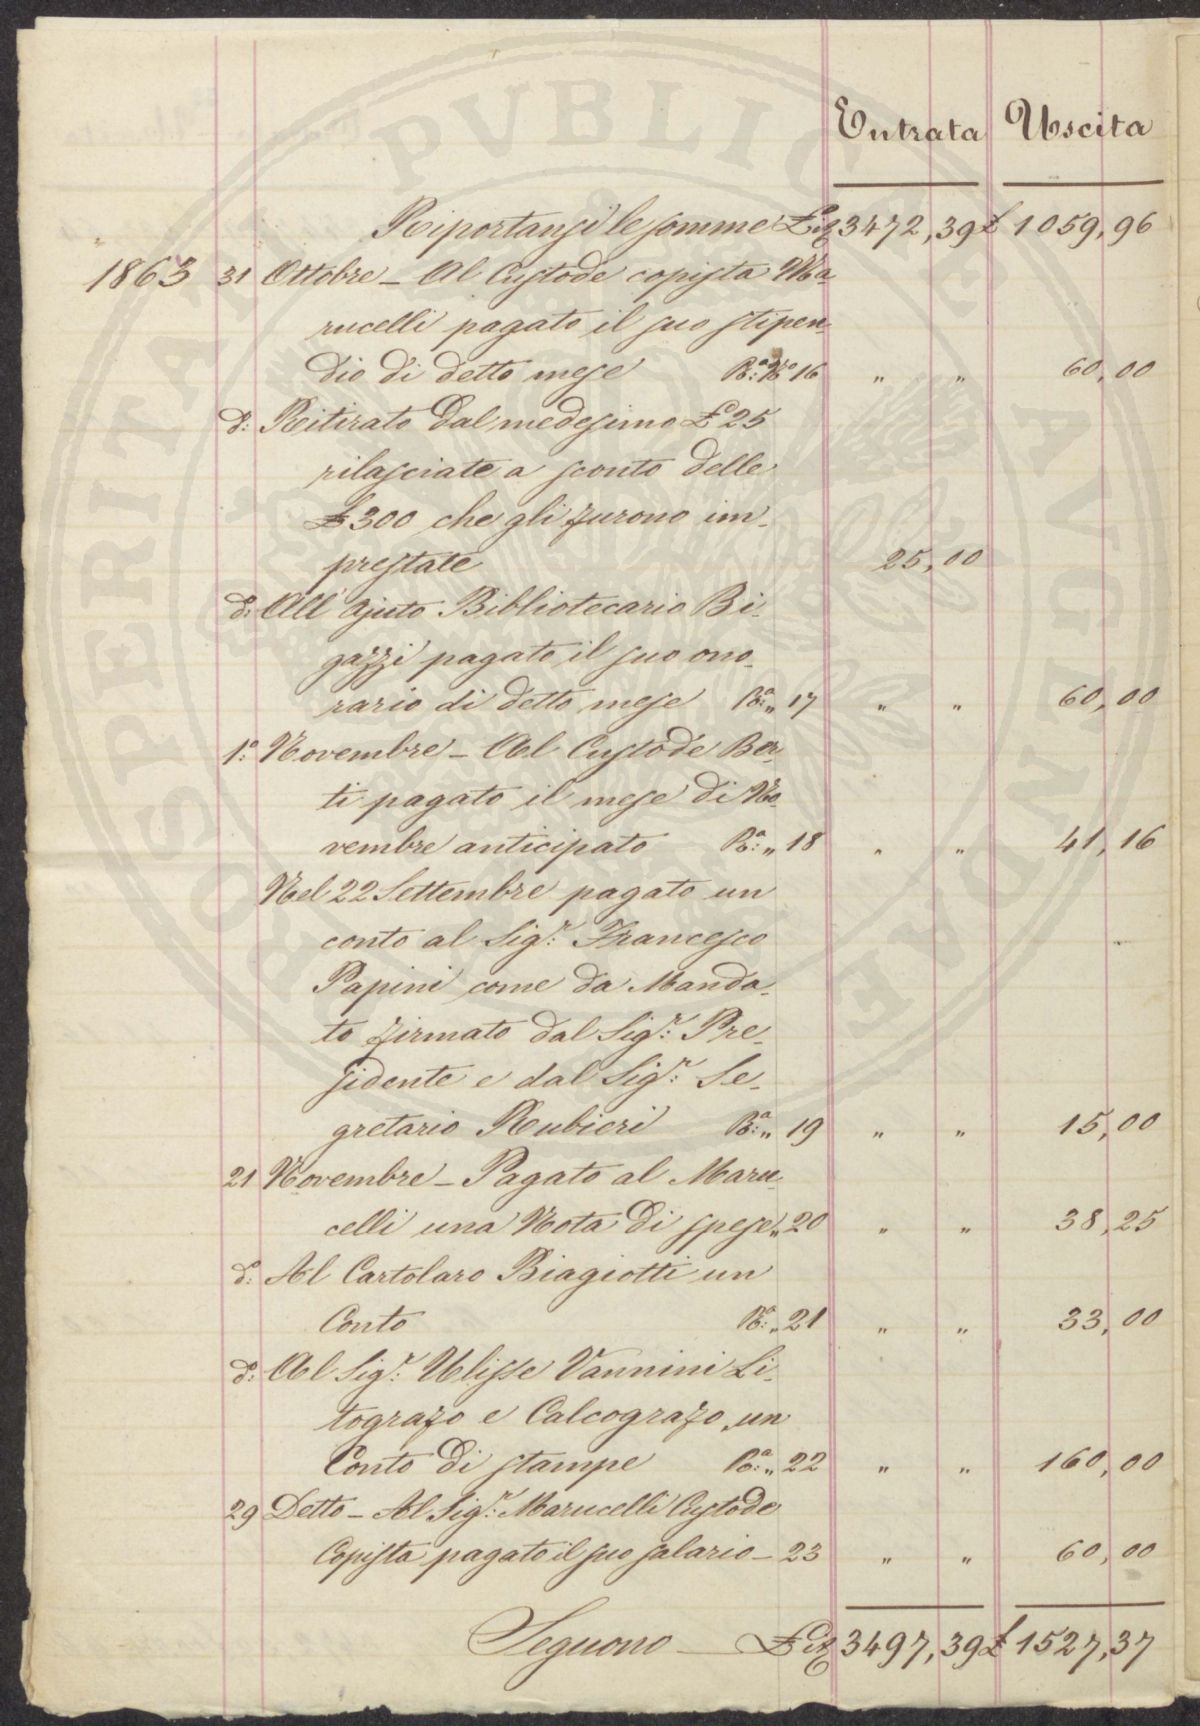 PROSPERITATI PVBLICAE AVGENDAE
Entrata Uscita
Riportansi le somme £it 3472,39 £ 1059,96
1863 31 Ottobre – Al Custode copista Ma
rucelli pagato il suo stipen-
dio di detto mese R:a N.o 16 " " 60,00
d: Ritirato dal medesimo £ 25
rilasciate a sconto delle
£ 300 che gli furono im-
prestate 25,00
d: All'Ajuto Bibliotecario Bi-
gazzi pagato il suo ono-
rario di detto mese R:a " 17 " " 60,00
1.o Novembre – Al Custode Ber-
ti pagato il mese di No-
vembre anticipato R:a " 18 " " 41,16
Nel 22 Settembre pagato un
conto al Sig.r: Francesco
Papini come da Manda-
to firmato dal Sig.r: Pre-
sidente e dal Sig.r: Se-
gretario Rubieri R:a " 19 " " 15,00
21 Novembre – Pagato al Maru-
celli una Nota di spese " 20 " " 38,25
d: Al Cartolaro Biagiotti un
Conto R:a " 21 " " 33,00
d: Al Sig.r: Ulisse Vannini Li-
tografo e Calcografo, un
Conto di stampe R:a " 22 " " 160,00
29 Detto – Al Sig.r: Marucelli Custode
Copista pagato il suo salario – 23 " " 60,00
Seguono – £it 3497,39 £ 1527,37